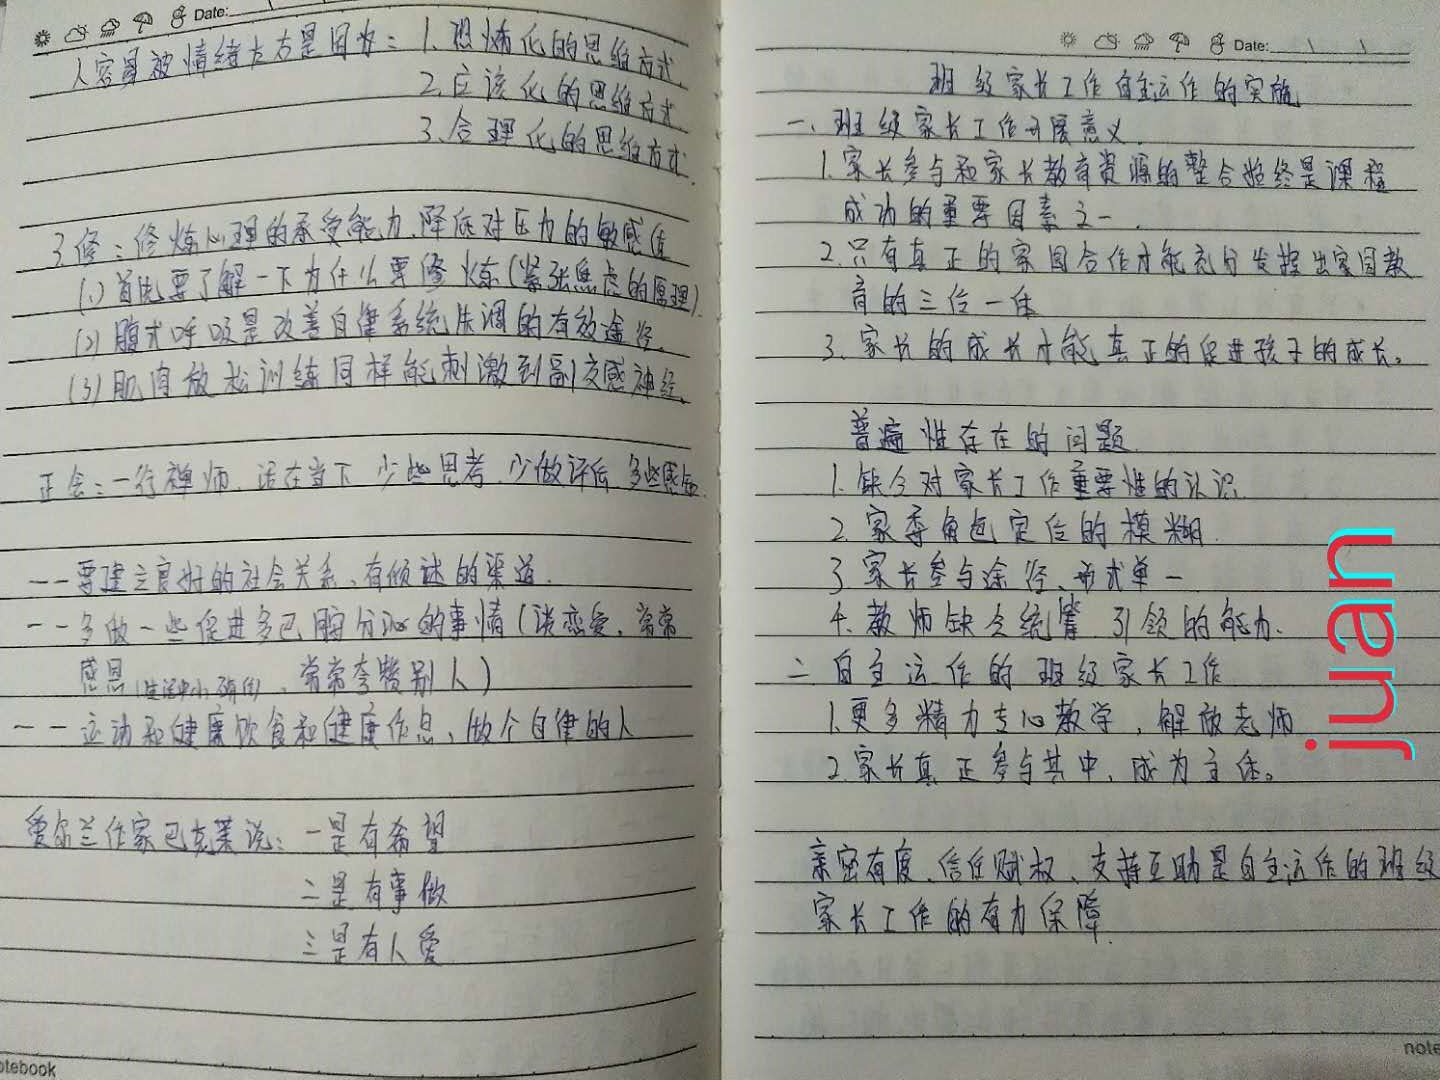 Date:
人容易被情绪左右是因为：1.恐怖化的思维方式
2.应该化的思维方式
3.合理化的思维方式.
3.修：修炼心理的承受能力.降低对压力的敏感值
(1)首先要了解一下为什么要修炼(紧张焦虑的原理)
(2)腹式呼吸是改善自律系统失调的有效途径.
(3)肌肉放松训练同样能刺激到副交感神经.
正念：一行禅师.活在当下 少些思考.少做评估 多些感知.
--要建立良好的社会关系、有倾述的渠道.
--多做一些促进多巴胺分泌的事情(谈恋爱、常常
感恩、常常夸赞别人)
--运动和健康饮食和健康作息、做个自律的人
爱尔兰作家巴克莱说：一是有希望
二是有事做
三是有人爱
notebook
Date:
班级家长工作自主运作的实施
一、班级家长工作开展意义.
1.家长参与和家长教育资源的整合始终是课程
成功的重要因素之一.
2.只有真正的家园合作才能充分发挥出家园教
育的三位一体
3.家长的成长才能真正的促进孩子的成长。
普遍性存在的问题.
1.缺乏对家长工作重要性的认识.
2.家委角色定位的模糊.
3.家长参与途径、形式单一
4.教师缺乏统筹 引领的能力.
二自主运作的班级家长工作
1.更多精力专心教学，解放老师
2.家长真正参与其中，成为主体。
亲密有度、信任赋权、支持互助是自主运作的班级
家长工作的有力保障.
note
juan